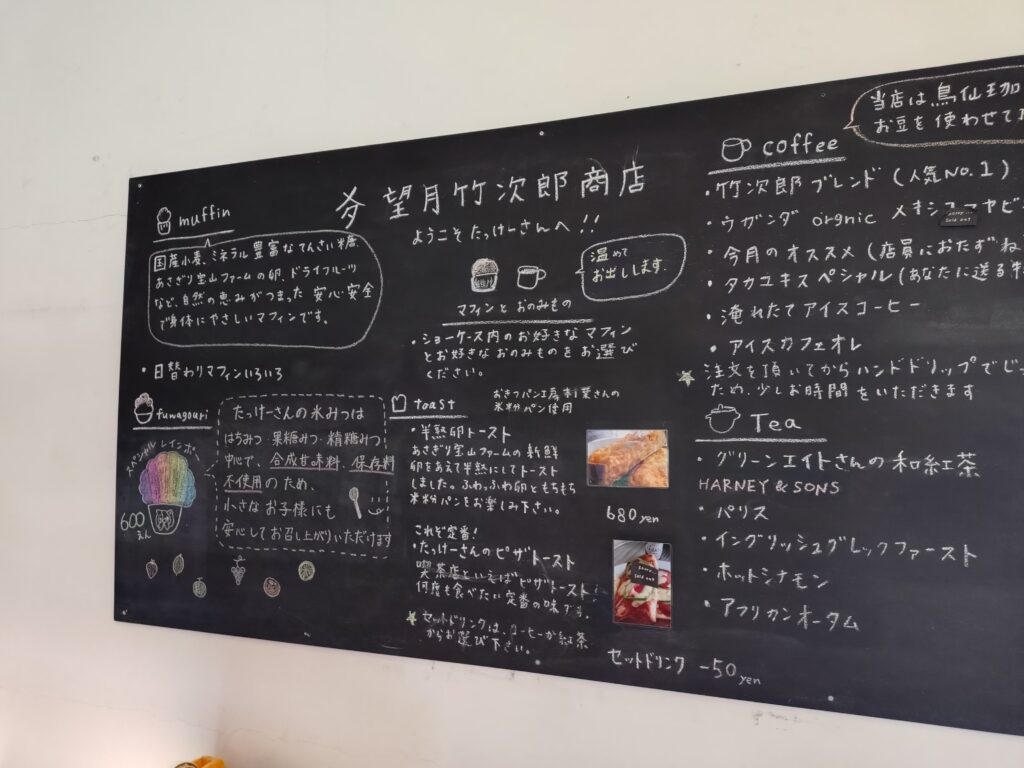 望月竹次郎商店
ようこそ たっけーさんへ!!
muffin
国産小麦、ミネラル豊富なてんさい糖
あさぎり宝山ファームの卵、ドライフルーツ
など、自然の恵みがつまった 安心・安全
で身体にやさしいマフィンです。
・日替わりマフィンいろいろ
fuwagouri
スペシャルレインボー
600
えん
たっけーさんの氷みつは
はちみつ・果糖みつ・精糖みつ
中心で、合成甘味料、保存料
不使用のため、
小さなお子様にも
安心してお召し上がりいただけます
温めて
お出しします。
マフィンとおのみもの
・ショーケース内のお好きなマフィン
とお好きなおのみものをお選び
ください。
toast
米粉パン使用
・半熟卵トースト
あさぎり宝山ファームの新鮮
卵をあえて半熟にしてトースト
しました。ふわっふわ卵ともちもち
米粉パンをお楽しみ下さい。
680yen
これぞ定番!
・たっけーさんのピザトースト
喫茶店といえばピザトースト
何度も食べたい定番の味です。
セットドリンクは、コーヒーか紅茶
からお選び下さい。
sorry...
Sold out
セットドリンク -50yen
当店は鳥仙珈
お豆を使わせて
coffee
・竹次郎ブレンド(人気No.1)
・ウガンダ orgnic メキシコマヤビ
sorry...
Sold out
・今月のオススメ(店員におたずね
・タカユキスペシャル(あなたに送る
・淹れたてアイスコーヒー
・アイスカフェオレ
注文を頂いてからハンドドリップでじ
ため、少しお時間をいただきます
Tea
・グリーンエイトさんの和紅茶
HARNEY & SONS
・パリス
・イングリッシュブレックファースト
・ホットシナモン
・アフリカンオータム